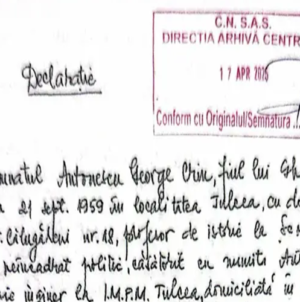 C.N. S.A.S.
DIRECTIA ARHIVĂ CENTR
17 APR 2025
Conform cu Originalul/Semnatura ...
Declarație
mnatul Antonescu George Chiru, fiul lui Gh
21 sept. 1959 în localitatea Tulcea, cu do
Călugăreni nr. 18, profesor de istorie la
neîncadrat politic, căsătorit cu numita
inginer la I.M.P.M. Tulcea, domiciliată în